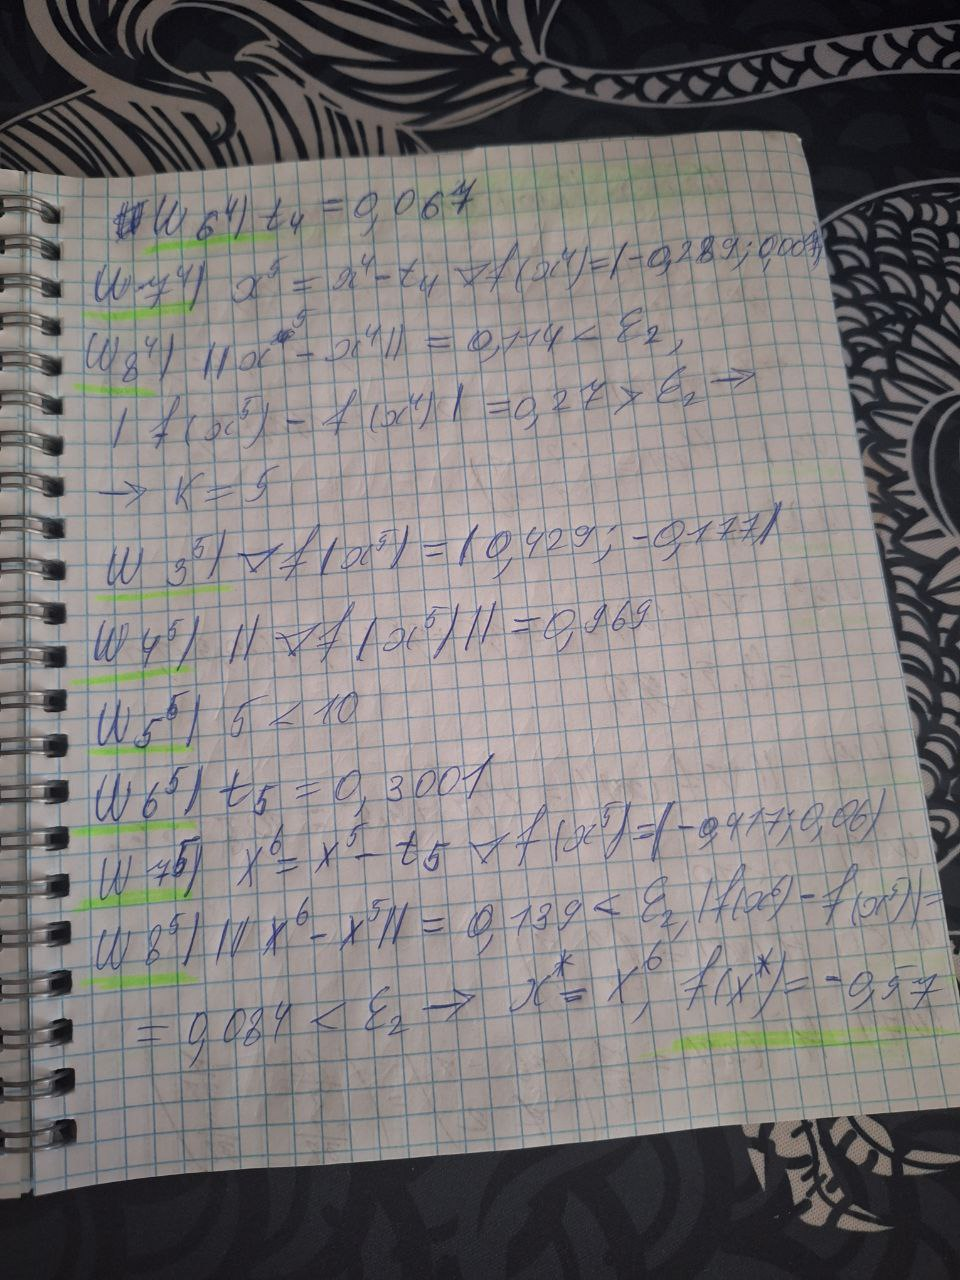 Ш 6⁴) t₄ = 0,067
Ш 7⁴) x⁵ = x⁴ - t₄ ∇f(x⁴) = (-0,289; 0,007)
Ш 8⁴) ||x⁵ - x⁴|| = 0,114 < ε₂,
| f(x⁵) - f(x⁴) | = 0,27 > ε₂ →
→ K = 5
Ш 3⁵) ∇f(x⁵) = (0,429; -0,177)
Ш 4⁵) || ∇f(x⁵) || = 0,969
Ш 5⁵) 5 < 10
Ш 6⁵) t₅ = 0,3001
Ш 7⁵) x⁶ = x⁵ - t₅ ∇f(x⁵) = (-0,417; 0,06)
Ш 8⁵) || x⁶ - x⁵ || = 0,139 < ε₂, |f(x⁶) - f(x⁵)| =
= 0,084 < ε₂ → x* = x⁶, f(x*) = -0,57